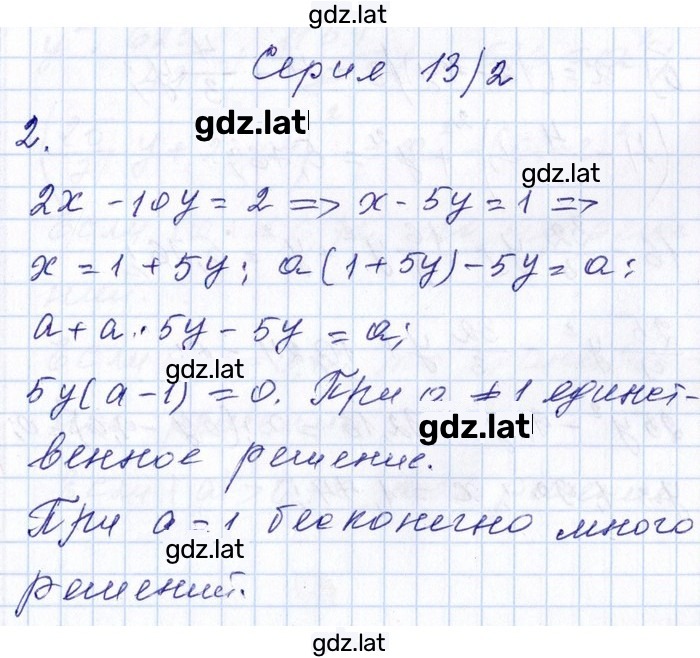 gdz.lat
Серия 13/2
gdz.lat
2.
gdz.lat
2x - 10y = 2 => x - 5y = 1 =>
x = 1 + 5y; a(1 + 5y) - 5y = a;
a + a · 5y - 5y = a;
gdz.lat
5y(a - 1) = 0. При a ≠ 1 единст-
gdz.lat
венное решение.
При a = 1 бесконечно много
gdz.lat
решений.
gdz.lat